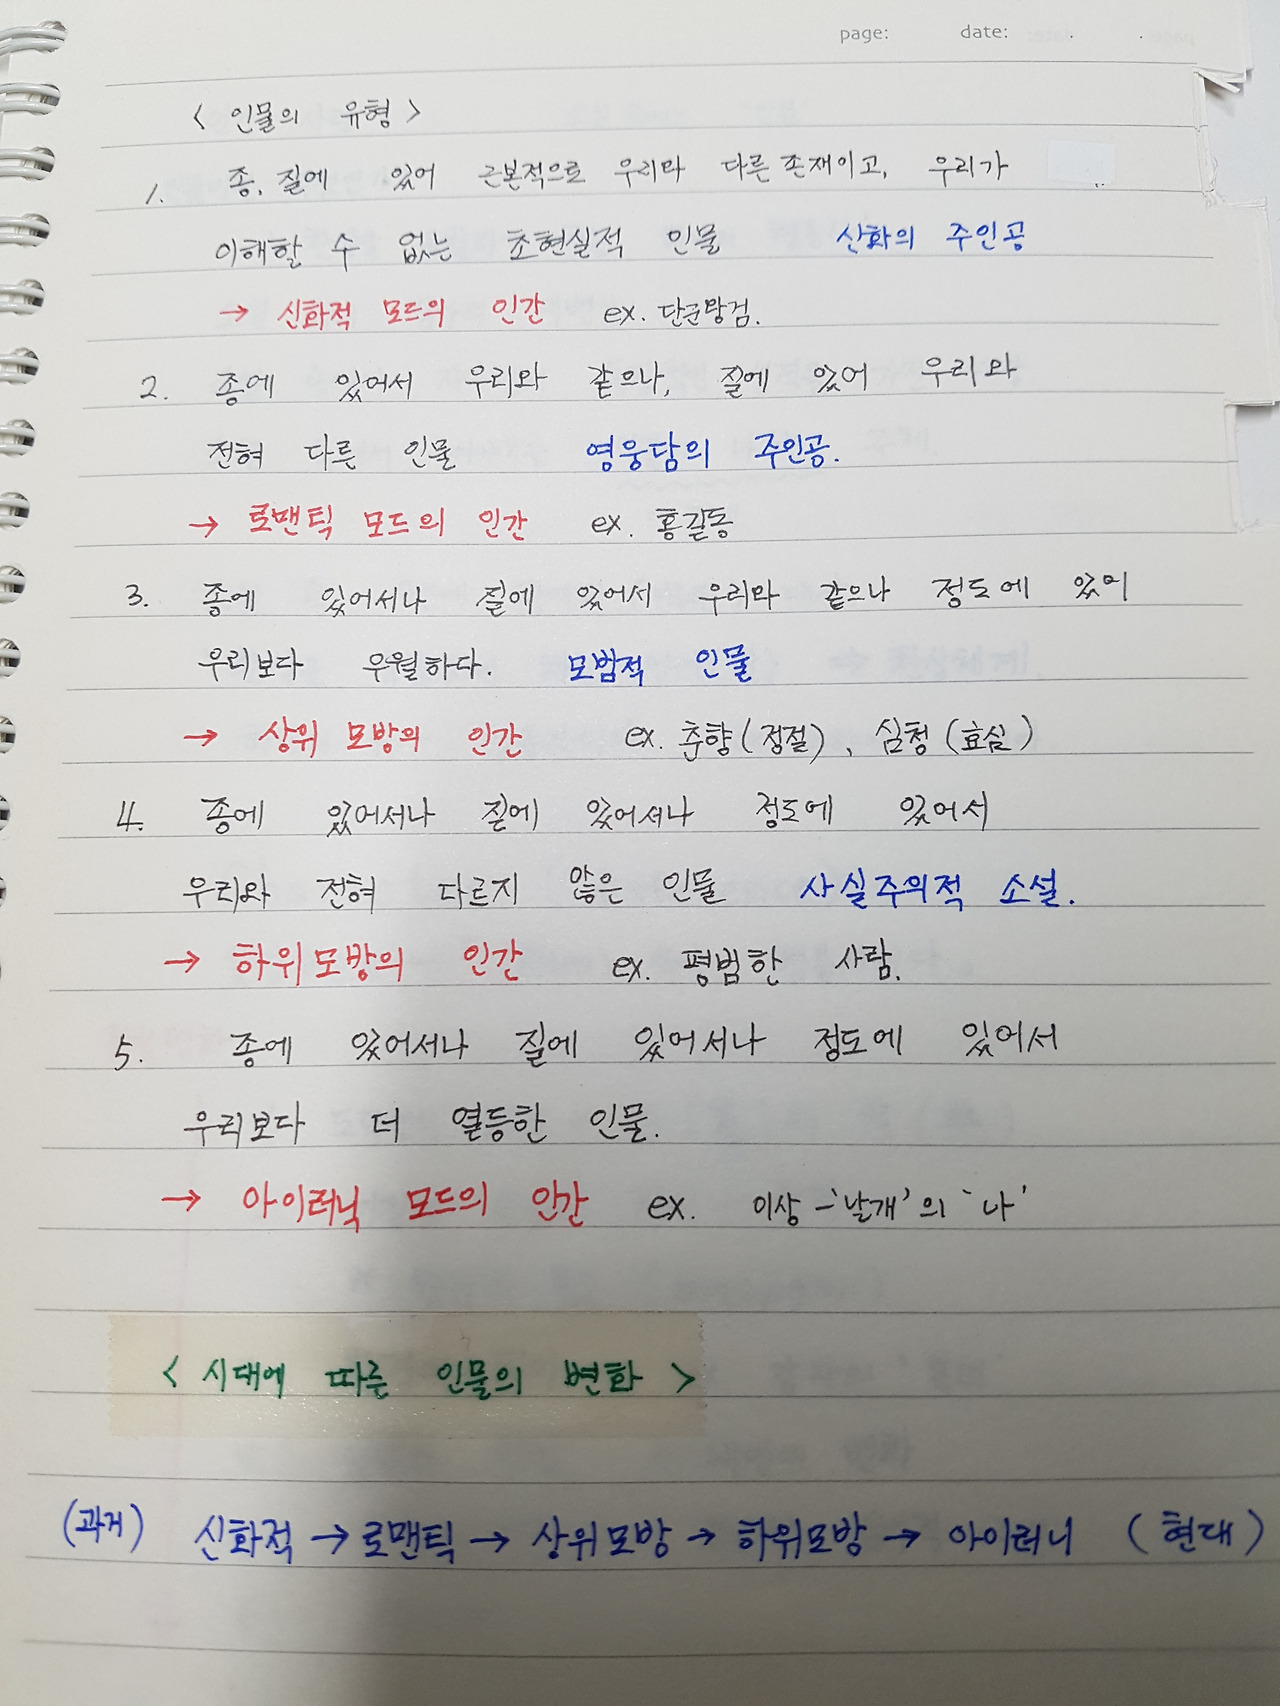 page: date: . .
< 인물의 유형 >
1. 종, 질에 있어 근본적으로 우리와 다른 존재이고, 우리가
이해할 수 없는 초현실적 인물 신화의 주인공
→ 신화적 모드의 인간 ex. 단군왕검.
2. 종에 있어서 우리와 같으나, 질에 있어 우리와
전혀 다른 인물 영웅담의 주인공.
→ 로맨틱 모드의 인간 ex. 홍길동
3. 종에 있어서나 질에 있어서 우리와 같으나 정도에 있어
우리보다 우월하다. 모범적 인물
→ 상위 모방의 인간 ex. 춘향(정절), 심청(효심)
4. 종에 있어서나 질에 있어서나 정도에 있어서
우리와 전혀 다르지 않은 인물 사실주의적 소설.
→ 하위모방의 인간 ex. 평범한 사람.
5. 종에 있어서나 질에 있어서나 정도에 있어서
우리보다 더 열등한 인물.
→ 아이러닉 모드의 인간 ex. 이상 - '날개'의 '나'
< 시대에 따른 인물의 변화 >
(과거) 신화적 → 로맨틱 → 상위모방 → 하위모방 → 아이러니 (현대)